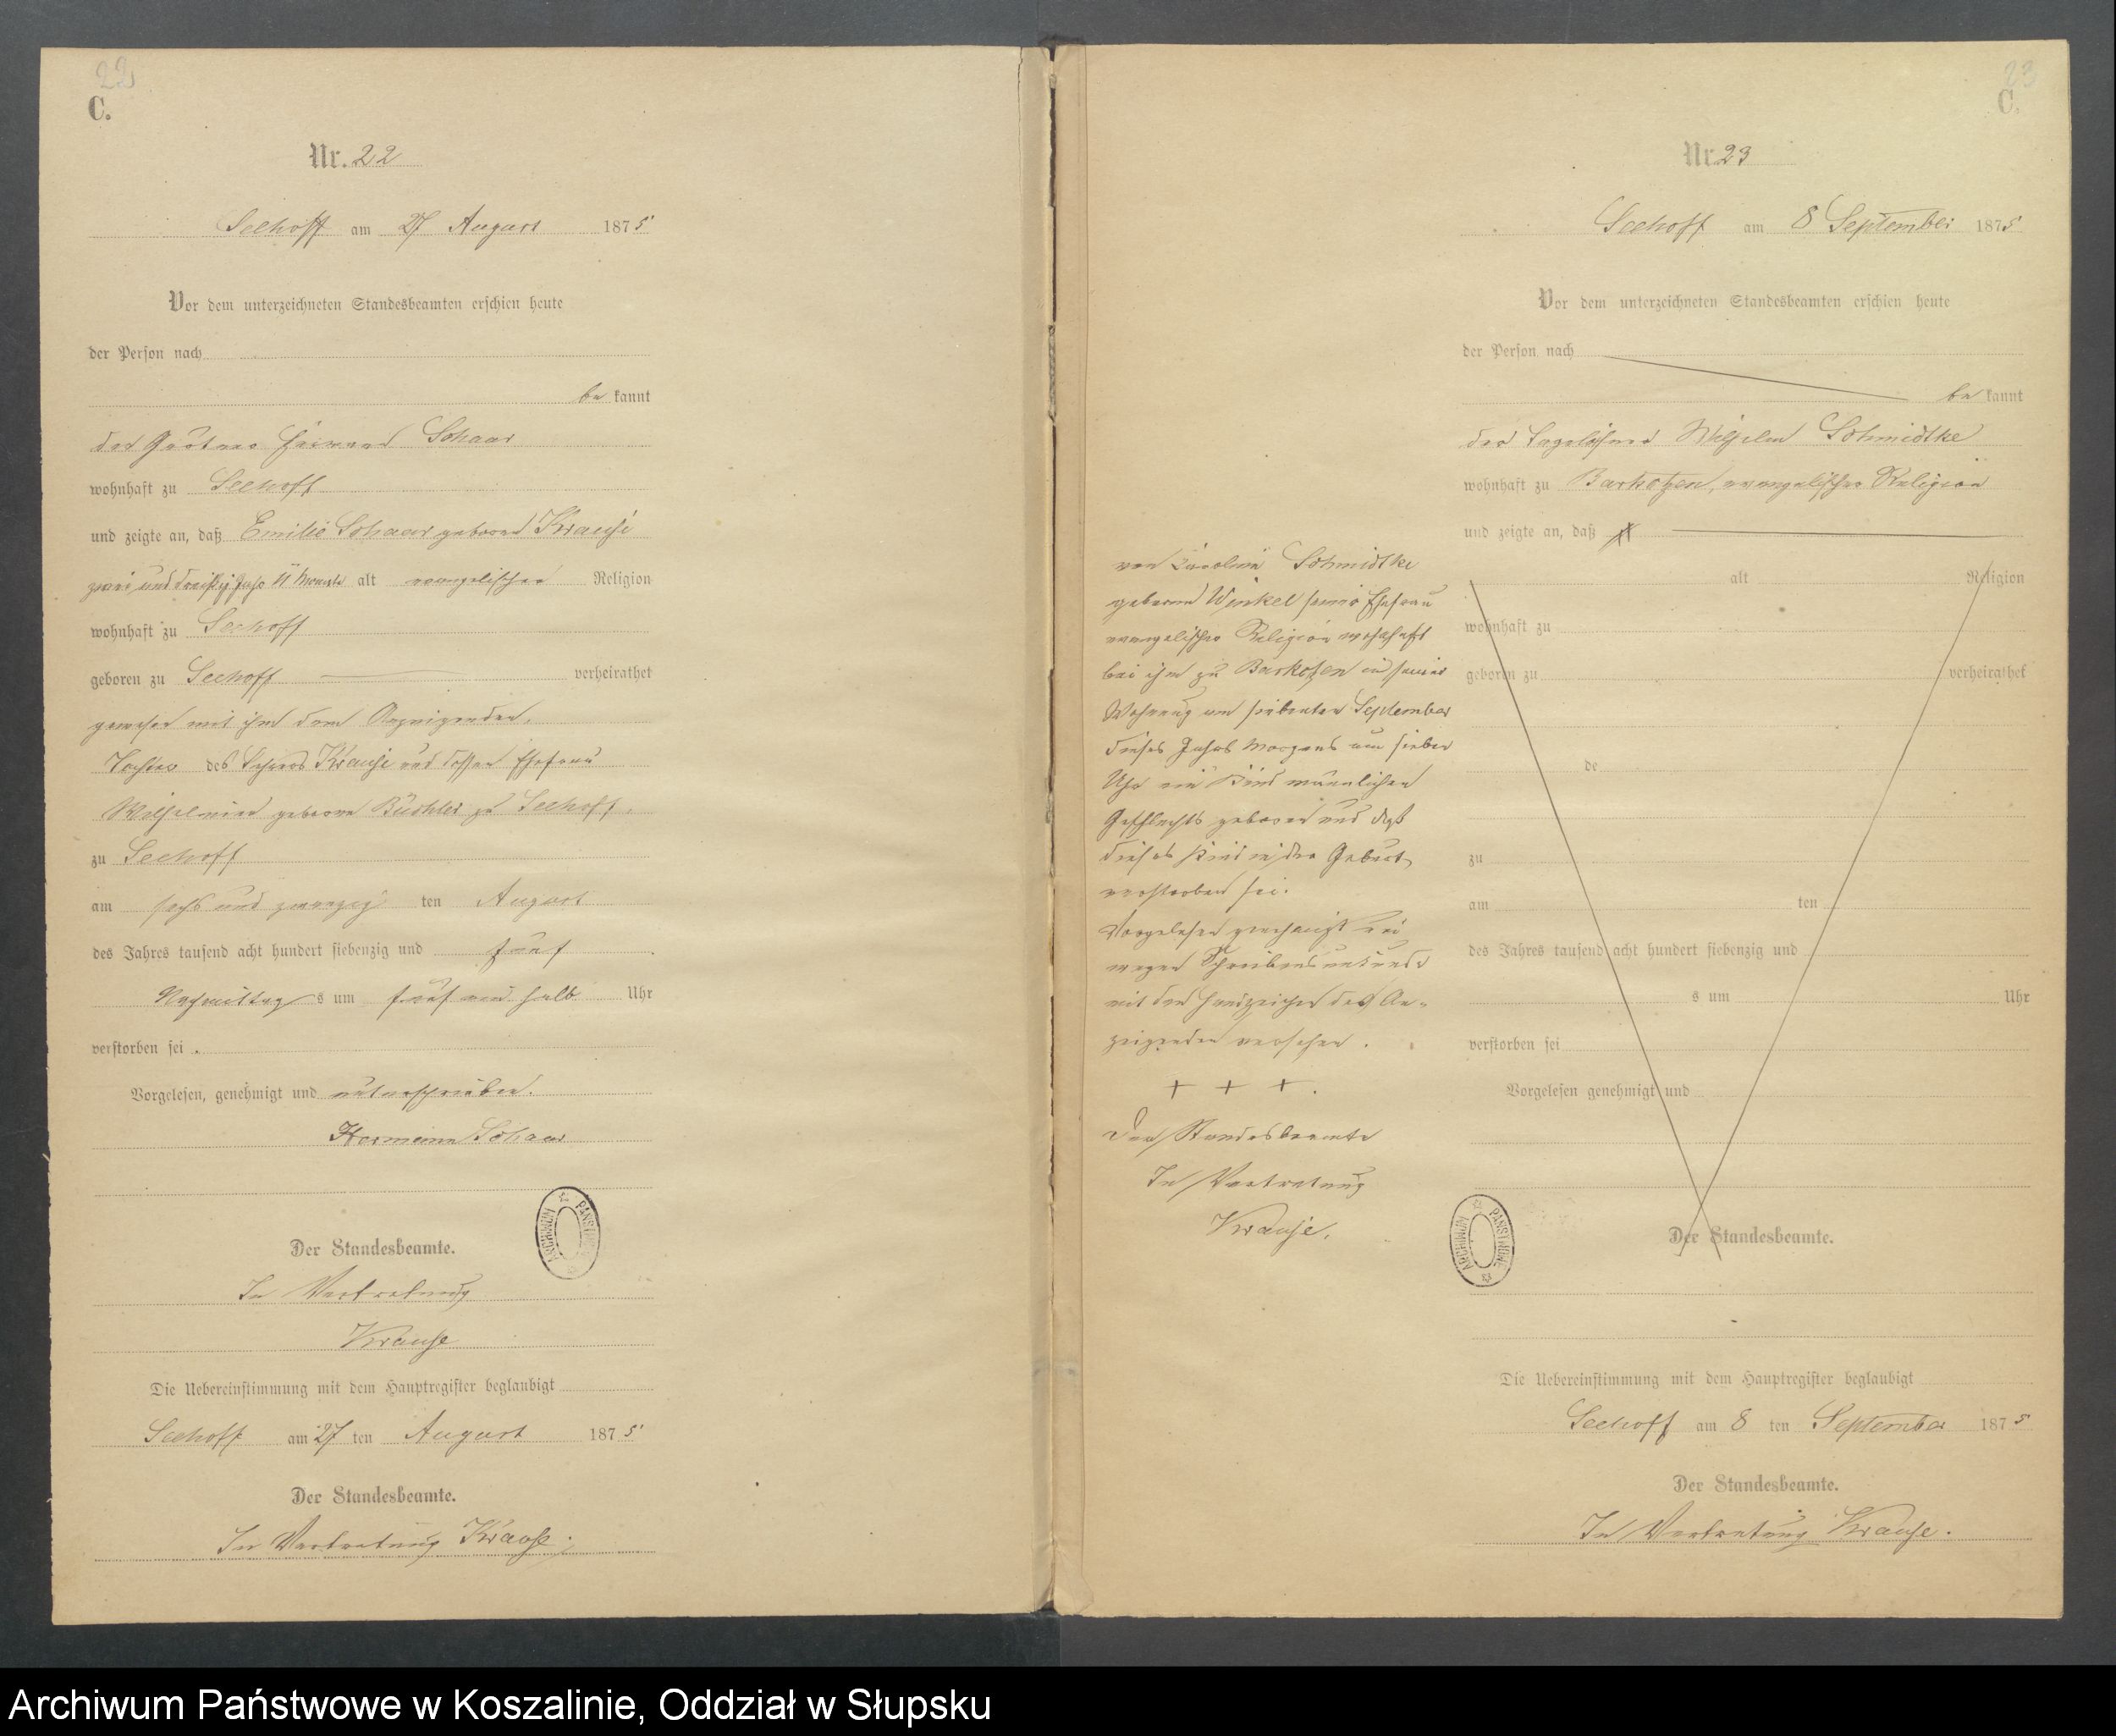 22
C.
Nr. 22
Seehoff am 27 August 1875
Vor dem unterzeichneten Standesbeamten erschien heute
der Person nach
be kannt
der Gärtner Herrmann Schaar
wohnhaft zu Seehoff
und zeigte an, daß Emilie Schaar geborene Krause
zwei und dreißig Jahr 11 Monate alt evangelischer Religion
wohnhaft zu Seehoff
geboren zu Seehoff verheirathet
gewesen mit ihm dem Anzeigenden.
Tochter des Lehrers Krause und dessen Ehefrau
Wilhelmine geborene zu Seehoff.
zu Seehoff
am sechs und zwanzig ten August
des Jahres tausend acht hundert siebenzig und fünf
Nachmittag s um fünf ein halb Uhr
verstorben sei.
Vorgelesen, genehmigt und unterschrieben.
Hermann Schaar
ARCHIWUM PAŃSTWOWE
Der Standesbeamte.
In Vertretung
Krause
Die Uebereinstimmung mit dem Hauptregister beglaubigt
Seehoff am 27 ten August 1875
Der Standesbeamte.
In Vertretung Krause.
23
C.
Nr. 23
Seehoff am 8 September 1875
Vor dem unterzeichneten Standesbeamten erschien heute
der Person nach
be kannt
der Tagelöhner Wilhelm Schmidtke
wohnhaft zu Barkotzen, evangelischer Religion
und zeigte an, daß
von Carolina Schmidtke
geborene Winkel seiner Ehefrau
evangelischer Religion wohnhaft
bei ihm zu Barkotzen in seiner
Wohnung am siebenten September
dieses Jahres Morgens um sieben
Uhr ein Kind männlichen
Geschlechts geboren und daß
dieses Kind in der Geburt
verstorben sei.
Vorgelesen genehmigt und
wegen Schreibensunkunde
mit dem Handzeichen des An-
zeigenden versehen.
+ + +.
Der Standesbeamte
In Vertretung
Krause.
alt Religion
wohnhaft zu
geboren zu verheirathet
de
zu
am ten
des Jahres tausend acht hundert siebenzig und
s um Uhr
verstorben sei
Vorgelesen genehmigt und
ARCHIWUM PAŃSTWOWE
Der Standesbeamte.
Die Uebereinstimmung mit dem Hauptregister beglaubigt
Seehoff am 8 ten September 1875
Der Standesbeamte.
In Vertretung Krause.
Archiwum Państwowe w Koszalinie, Oddział w Słupsku